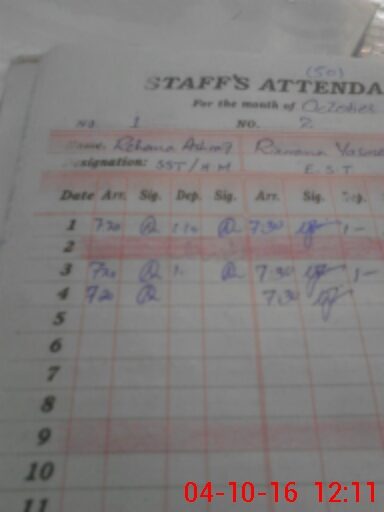 (50)
STAFF'S ATTENDA
For the month of October
NO. 1 NO. 2
Rehana
signation: SST/HM E.S.T
Date Arr. Sig. Dep. Sig. Arr. Sig.
1 7:20 1:10 7:30 1-
2
3 7:20 1- 7:30 1-
4 7:20 7:30
5
6
7
8
9
10
11
04-10-16 12:11